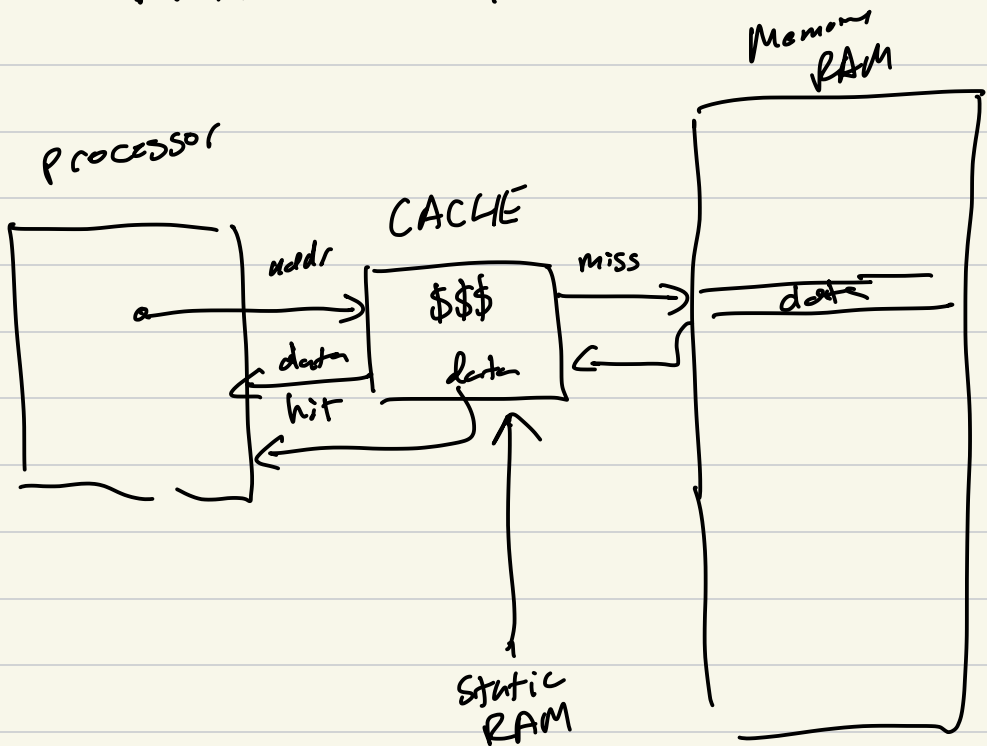 Memory
RAM
Processor
CACHE
addr
miss
$$$
data
data
data
hit
Static
RAM